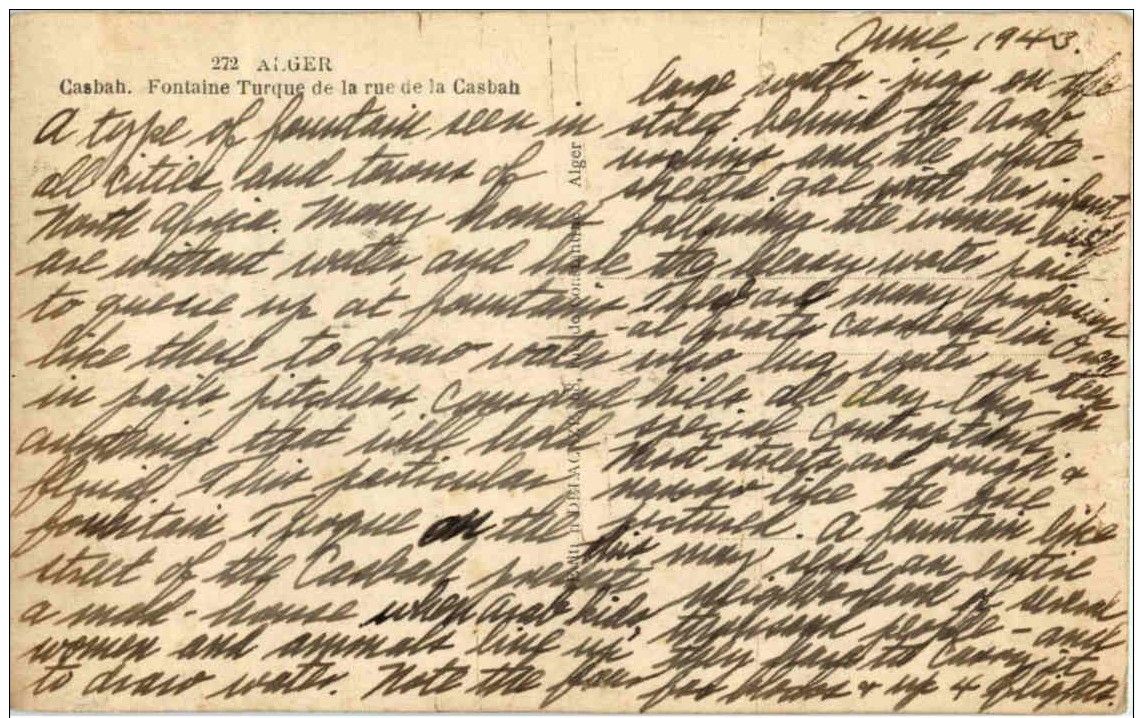 272 ALGER
Casbah. Fontaine Turque de la rue de la Casbah
A type of fountain seen in
all cities and towns of
North Africa. Many homes
are without water, and have
to queue up at fountains
like these to draw water
in pails, pitchers,
anything that will hold
fluid. This particular
fountain on the
street of the Casbah presents
a mad-house when Arab kids,
women and animals line up
to draw water. Note the four
June, 1943.
large water-jugs on the
street behind the Arab
urchins and the white-
sheeted gal with her infant
following the women
the heavy water pail
There are many professional
water carriers in
who lug water up
hills all day long in
special contraptions
Most streets are rough &
narrow like the one
pictured. A fountain like
this may serve an entire
neighborhood of several
thousand people - and
they have to carry it
for blocks & up 4 flights.
Alger